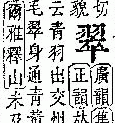 切
貌
翠
廣韻集
正韻
云青羽出交州
毛翠身通青黃
爾雅釋山未及